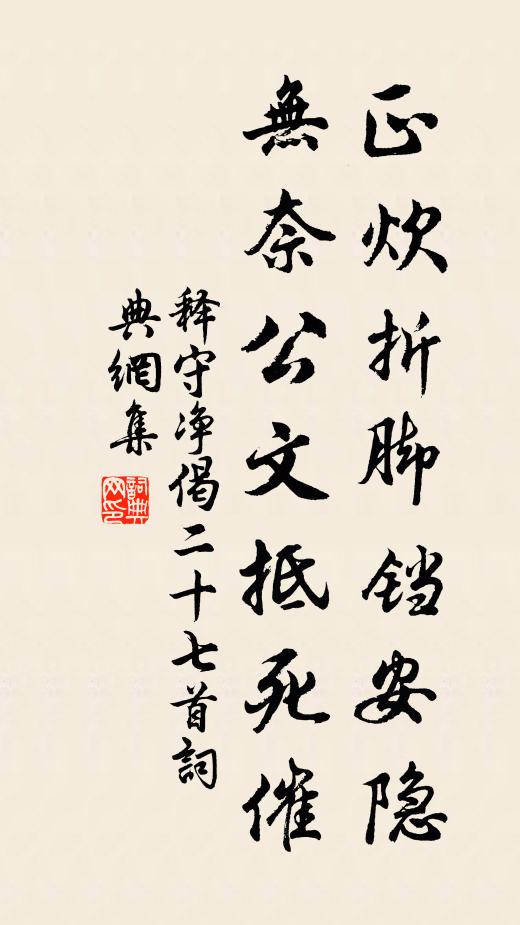 正炊折脚铛安隐
無奈公文抵死催
释守净偈二十七首詞
典網集
詞典
网印